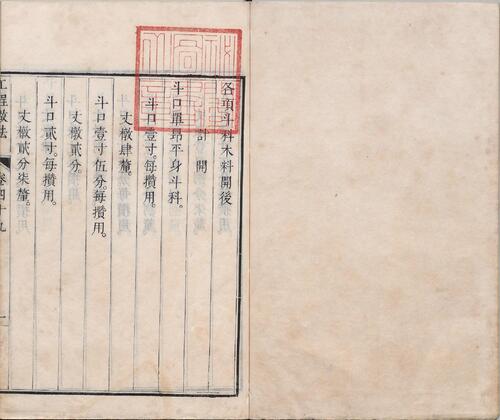 各項斗科木料開後
計開
斗口單昂平身斗科。
斗口壹寸。每攢用。
丈橔肆釐。
斗口壹寸伍分。每攢用。
丈橔貳分。
斗口貳寸。每攢用。
丈橔貳分柒釐。
工程做法
卷四十九
一